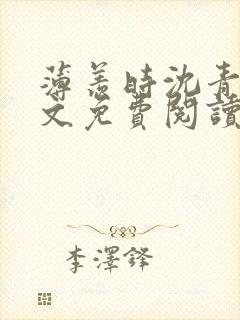 薄羞时沈青
文免費閱讀
李澤鋒